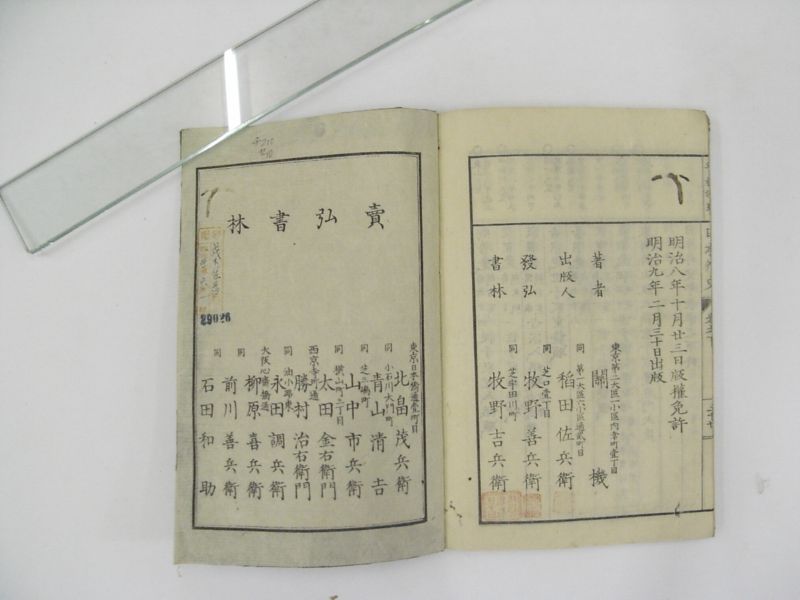 明治八年十月廿三日版權免許
明治九年二月三十日出版
東京第一大區二小區内幸町壹丁目
著者 關 機
同 第一大區六小區通貳町目
出版人 稻田佐兵衛
同 芝口壹丁目
發弘 牧野善兵衛
同 芝宇田川町
書林 牧野吉兵衛
賣弘書林
東京日本橋通壹町目
北畠茂兵衛
同 小石川大門町
青山清吉
同
山中市兵衛
同 横山町三丁目
太田金右衛門
西京寺町通
勝村治右衛門
同
永田調兵衛
大阪心齋橋通
柳原喜兵衛
同
前川善兵衛
同
石田和助
29026